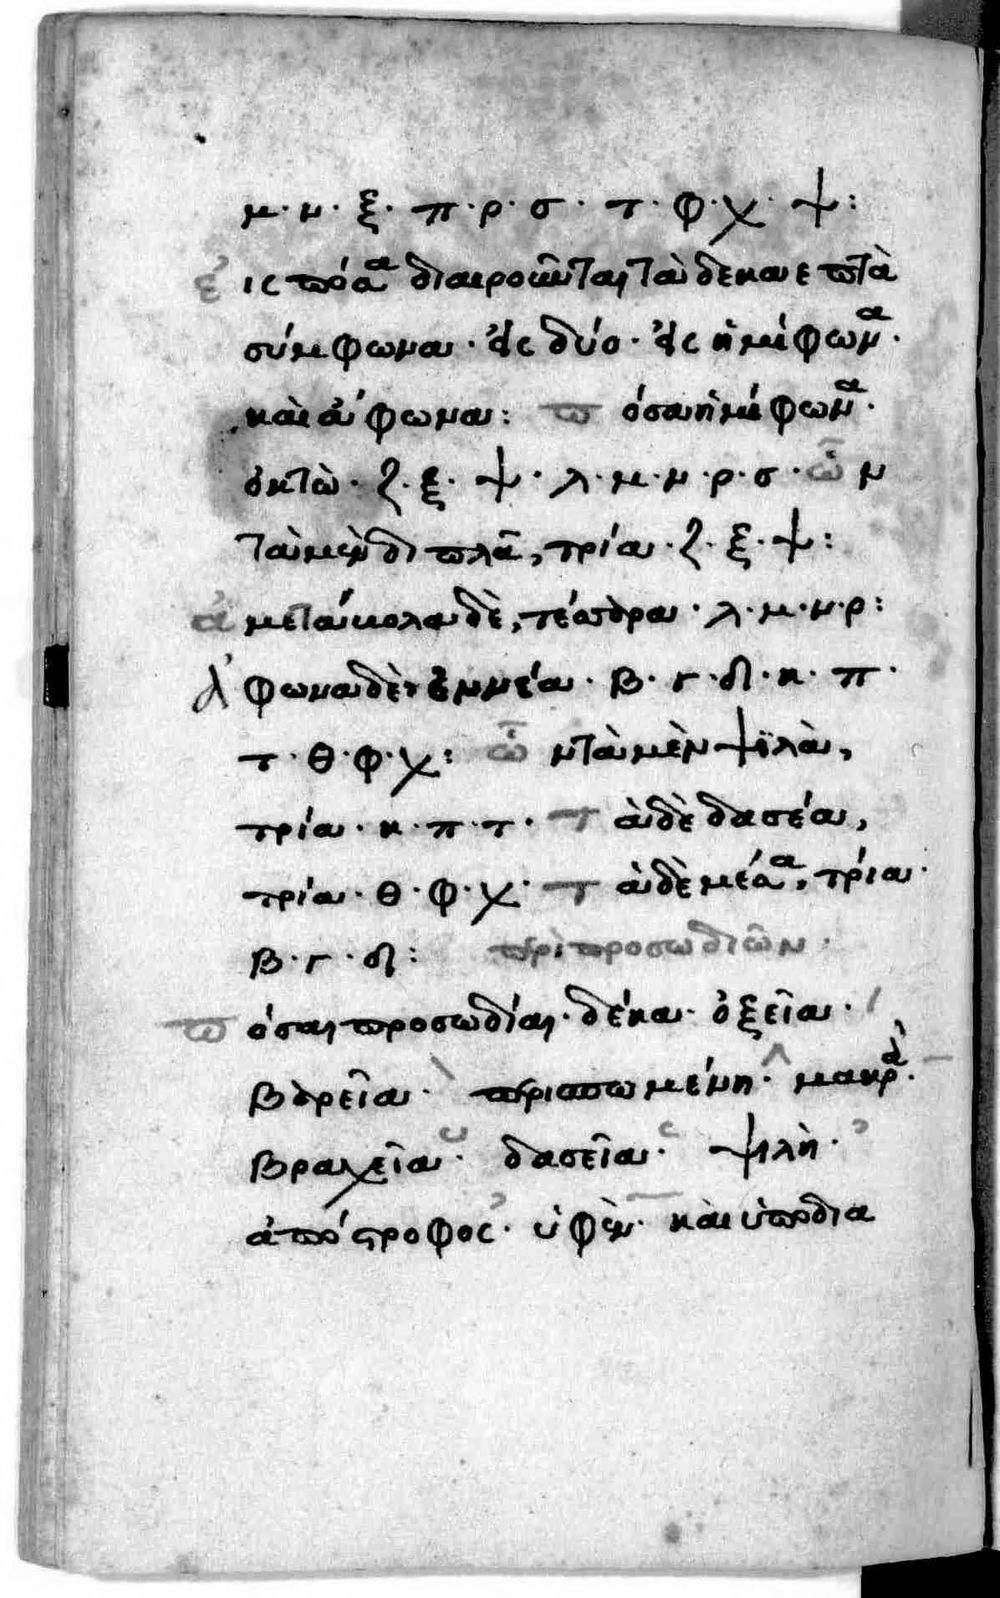 μ· ν· ξ· π· ρ· σ· τ· φ· χ· ψ:
εἰς πόσα διαιροῦνται τὰ δεκαεπτὰ
σύμφωνα· εἰς δύο· εἰς ἡμίφωνα·
καὶ ἄφωνα: πόσα ἡμίφωνα·
ὀκτὼ· ζ· ξ· ψ· λ· μ· ν· ρ· σ· ὧν
τὰ μὲν διπλᾶ, τρία· ζ· ξ· ψ:
ἀμετάβολα δὲ, τέσσαρα· λ· μ· ν· ρ:
ἄφωνα δὲ ἐννέα· β· γ· δ· κ· π·
τ· θ· φ· χ: ὧν τὰ μὲν ψιλὰ,
τρία· κ· π· τ· τὰ δὲ δασέα,
τρία· θ· φ· χ· τὰ δὲ μέσα, τρία·
β· γ· δ: περὶ προσωδιῶν·
πόσαι προσωδίαι· δέκα· ὀξεῖα· ´
βαρεῖα· ` περισπωμένη· ^ μακρὰ· ¯
βραχεῖα· ˘ δασεῖα· ῾ ψιλὴ· ᾿
ἀπόστροφος· ’ ὑφὲν· καὶ ὑποδια